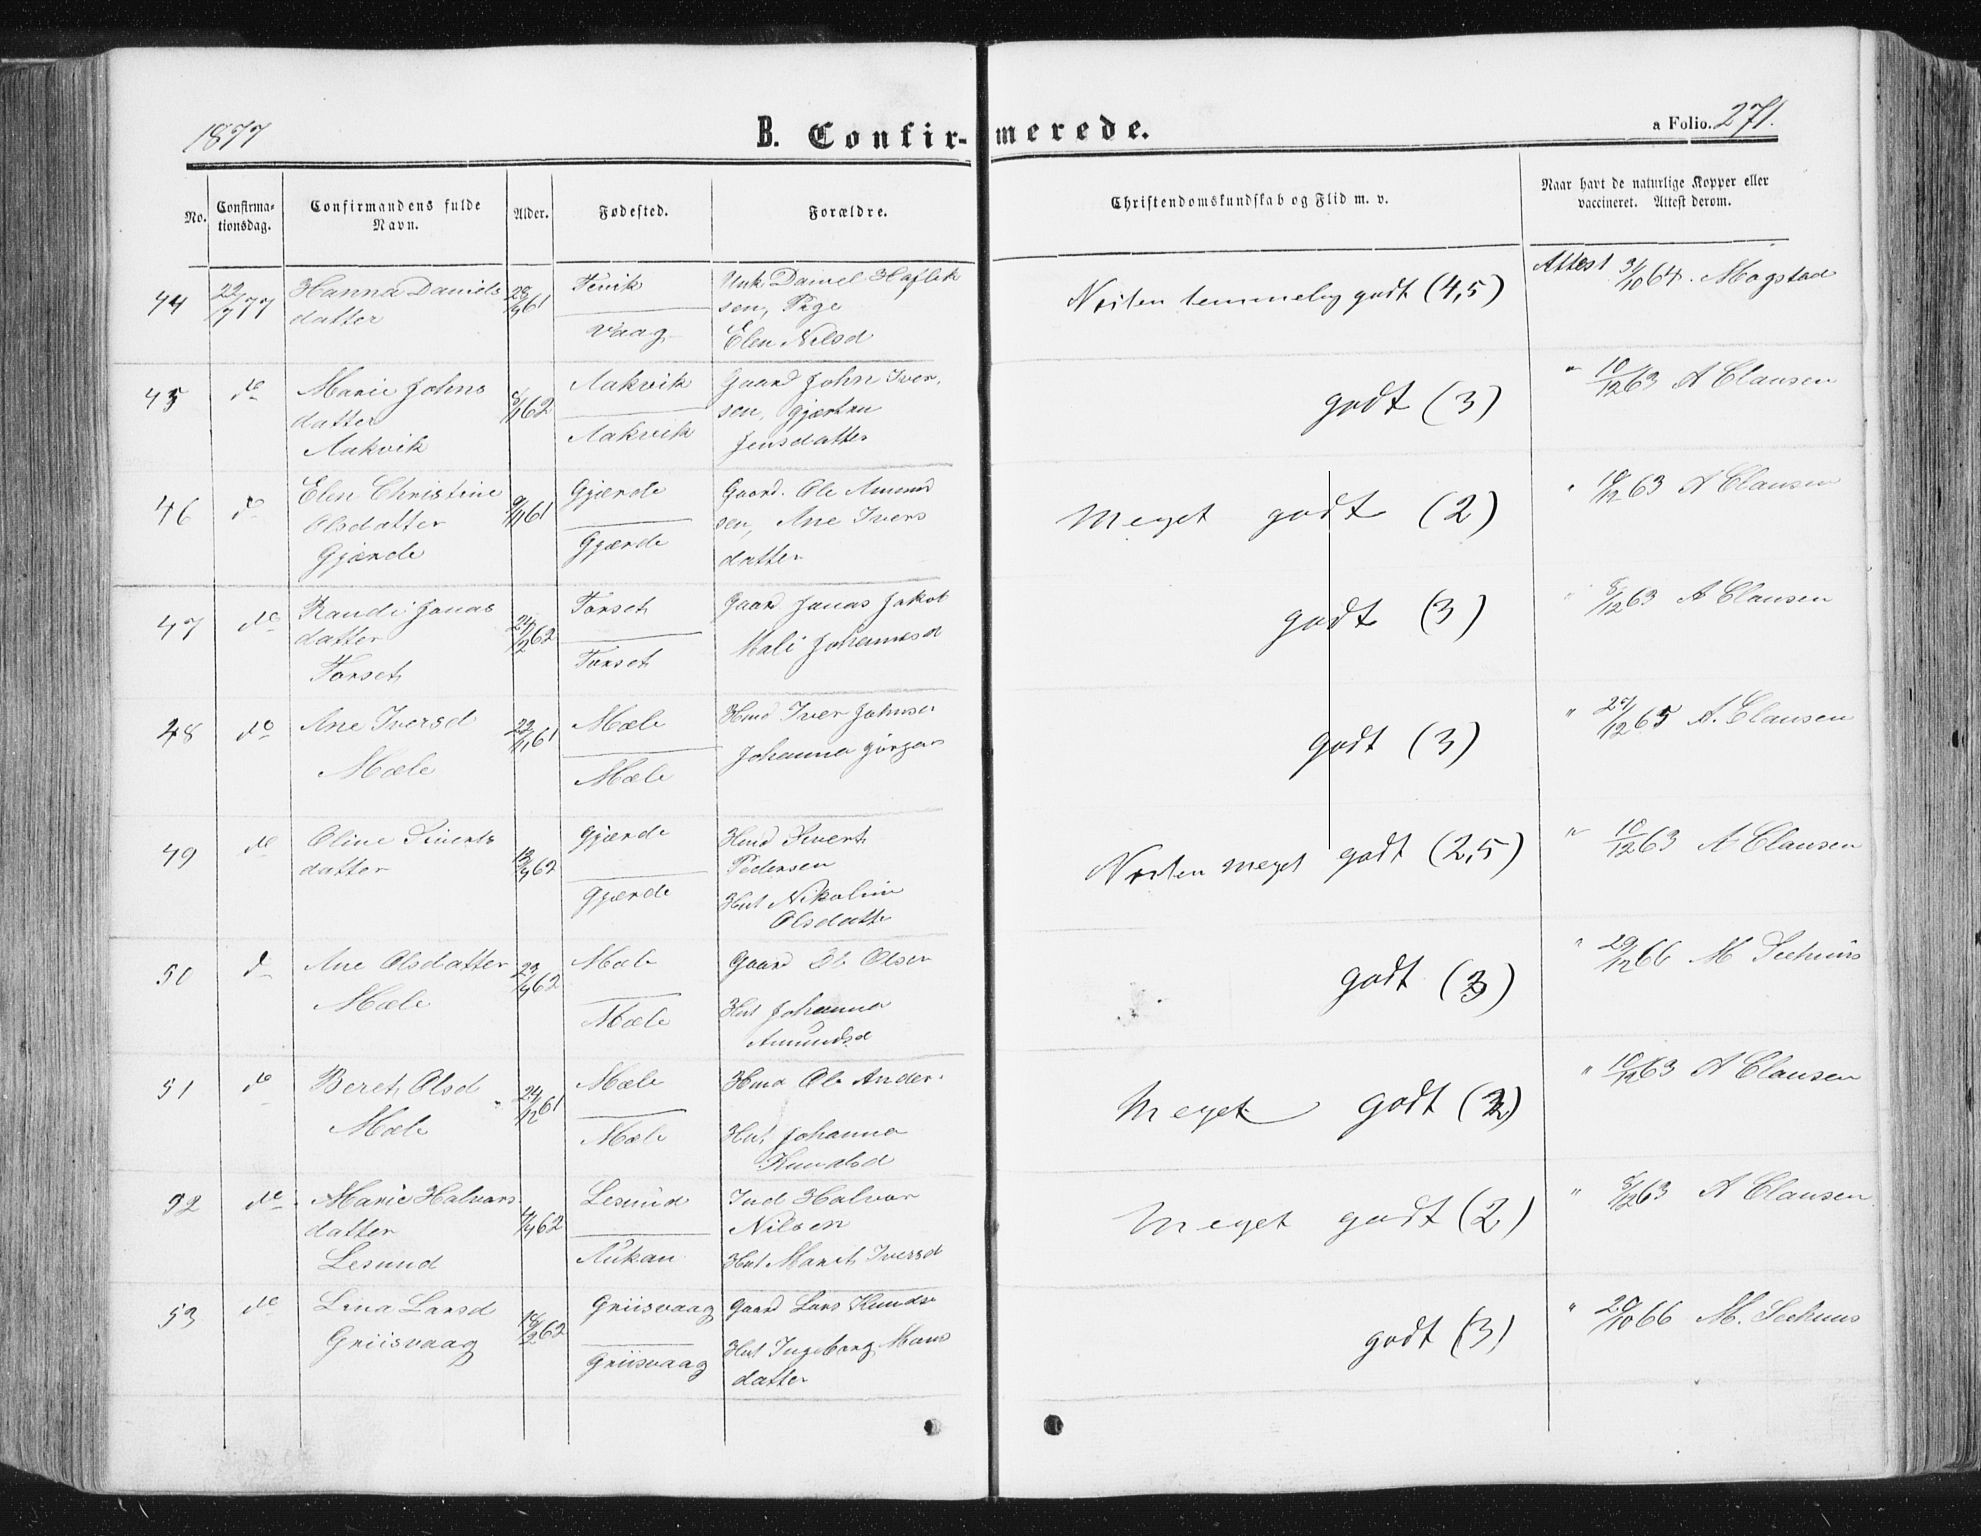 1877
B. Confir-merede.
a Folio. 271.
No.
Confirma-
tionsdag.
Confirmandens fulde
Navn.
Alder.
Fødested.
Forældre.
Christendomskundskab og Flid m. v.
Naar havt de naturlige Kopper eller
vaccineret. Attest derom.
44 22/7 77 Hanna Daniels
datter
28/9 61
Vaag
Daniel
sen, Pige
Elen Nilsd
Næsten temmelig godt (4,5)
Attest 31/10 64. Mogstad
45 do Marie Johns
datter
Aakvik
5/1 62
Aakvik
Aakvik
Gaard John Iver,
sen, Gjertru
Jensdatter
godt (3)
" 10/12 63 A Clausen
46 do Elen Christine
Olsdatter
Gjærde
9/11 61
Gjærde
Gjærde
Gaard. Ole Amund
sen, Ane Ivers
datter
Meget godt (2)
" 10/12 63 A Clausen
47 do Randi Jonas
datter
Forset
24/2 62
Forset
Forset
Gaard Jonas Jakob
Mali Johannesd
godt (3)
" 8/12 63 A Clausen
48 do Ane Iversd
Mæle
22/11 61
Mæle
Mæle
Hmd Iver Johnse
Johanna Jørgens
godt (3)
" 27/12 65 A. Clausen
49 do Oline Siverts
datter
13/9 62
Gjærde
Gjærde
Hmd Sivert
Pedersen
Hst Nikoline
Olsdatte
Næsten meget godt (2,5)
" 10/12 63 A Clausen
50 do Ane Olsdatter
Mæle
23/9 62
Mæle
Mæle
Gaard Ole Olsen
Hst Johanna
Amundsd
godt (3)
" 29/12 66 M Seehuus
51 do Beret Olsd
Mæle
24/12 61
Mæle
Mæle
Hmd Ole Anders
Hst Johanna
Knudsd
Meget godt (2)
" 10/12 63 A Clausen
52 do Marie Halvors
datter
Lesund
4/9 62
Lesund
Aukan
Ind Halvor
Nilsen
Hst Marit Iversd
Meget godt (2)
" 8/12 63 A Clausen
53 do Lina Larsd
Griisvaag
18/2 62
Griisvaag
Griisvaag
Gaard Lars Knuds
Hst Ingeborg Mons
datter
godt (3)
" 20/10 66 M. Seehuus